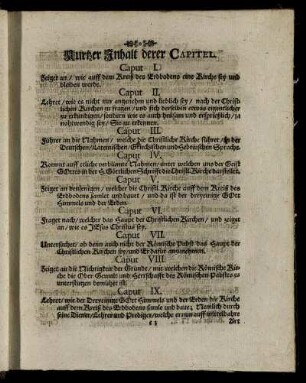 Kurtzer Inhalt derer CAPITEL.
Caput I.
Zeiget an / wie auff dem Kreiß des Erdbodens eine Kirche sey und
bleiben werde.
Caput II.
Lehret / wie es nicht nur angenehm und lieblich sey / nach der Christ-
lichen Kirchen zu fragen / und sich derselben etwas eigentlicher
zu erkundigen / sondern wie es auch heilsam und ersprießlich / ja
nothwendig sey / Sie zu erkennen.
Caput III.
Führet an die Nahmen / welche die Christliche Kirche führet / in der
Deutschen / Lateinischen / Griechischen und Hebreischen Sprache.
Caput IV.
Kommt auff etliche verblümte Nahmen / unter welchen uns der Geist
GOttes in der H. Göttlichen Schrifft die Christl. Kirche darstellet.
Caput V.
Zeiget an denjenigen / welcher die Christl. Kirche auff dem Kreiß des
Erdbodens samlet und bauet / und da ist der dreyeinige GOtt
Himmels und der Erden.
Caput VI.
Fraget nach / welcher das Haupt der Christlichen Kirchen / und zeiget
an / wie es JEsus Christus sey.
Caput VII.
Untersuchet / ob denn auch nicht der Römische Pabst das Haupt der
Christlichen Kirchen sey / und er dafür anzunehmen.
Caput VIII.
Zeiget an die Nichtigkeit der Gründe / mit welchen die Römische Kir-
che die Ober-Gewalt und Herrschafft des Römischen Pabstes zu
unterstützen bemühet ist.
Caput IX.
Lehret / wie der Dreyeinige GOtt Himmels und der Erden die Kirche
auff dem Kreiß des Erdbodens samle und baue; Nemlich durch
seine Diener / Lehrer und Prediger / welche er nun auff mittelbahre
Art